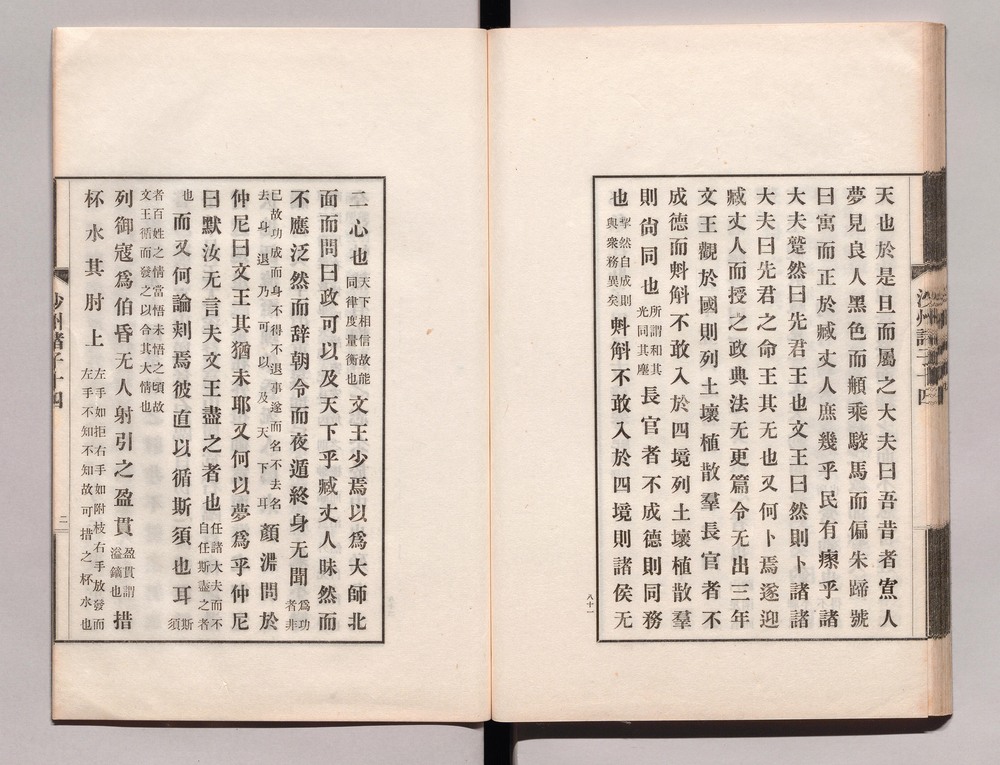 天也於是旦而屬之大夫曰吾昔者寡人
夢見良人黑色而乘駮馬而偏朱蹄號
曰寓而正於臧丈人庶幾乎民有瘳乎諸
大夫蹵然曰先君王也文王曰然則卜諸諸
大夫曰先君之命王其无也又何卜焉遂迎
臧丈人而授之政典法无更篇令无出三年
文王觀於國則列土壞植散羣長官者不
成德而斞斛不敢入於四境列土壞植散羣
則尙同也所謂和其光同其塵長官者不成德則同務
也然自成則與衆務異矣斞斛不敢入於四境則諸侯无
八十一
二心也天下相信故能同律度量衡也文王少焉以爲大師北
面而問曰政可以及天下乎臧丈人昧然而
不應泛然而辭朝令而夜遁終身无聞爲功者非
已故功成而身不得不退事遂而名不去名去身退乃可以及天下耳顏淵問於
仲尼曰文王其猶未耶又何以夢爲乎仲尼
曰默汝无言夫文王盡之者也任諸大夫而不自任斯盡之者
也而又何論刾焉彼直以循斯須也耳斯須
者百姓之情當悟未悟之頃故文王循而發之以合其大情也
列御寇爲伯昏无人射引之盈貫盈貫謂溢鏑也措
杯水其肘上左手如拒右手如附枝右手放發而左手不知不知故可措之杯水也
沙州諸子十四
二
沙州諸子十四